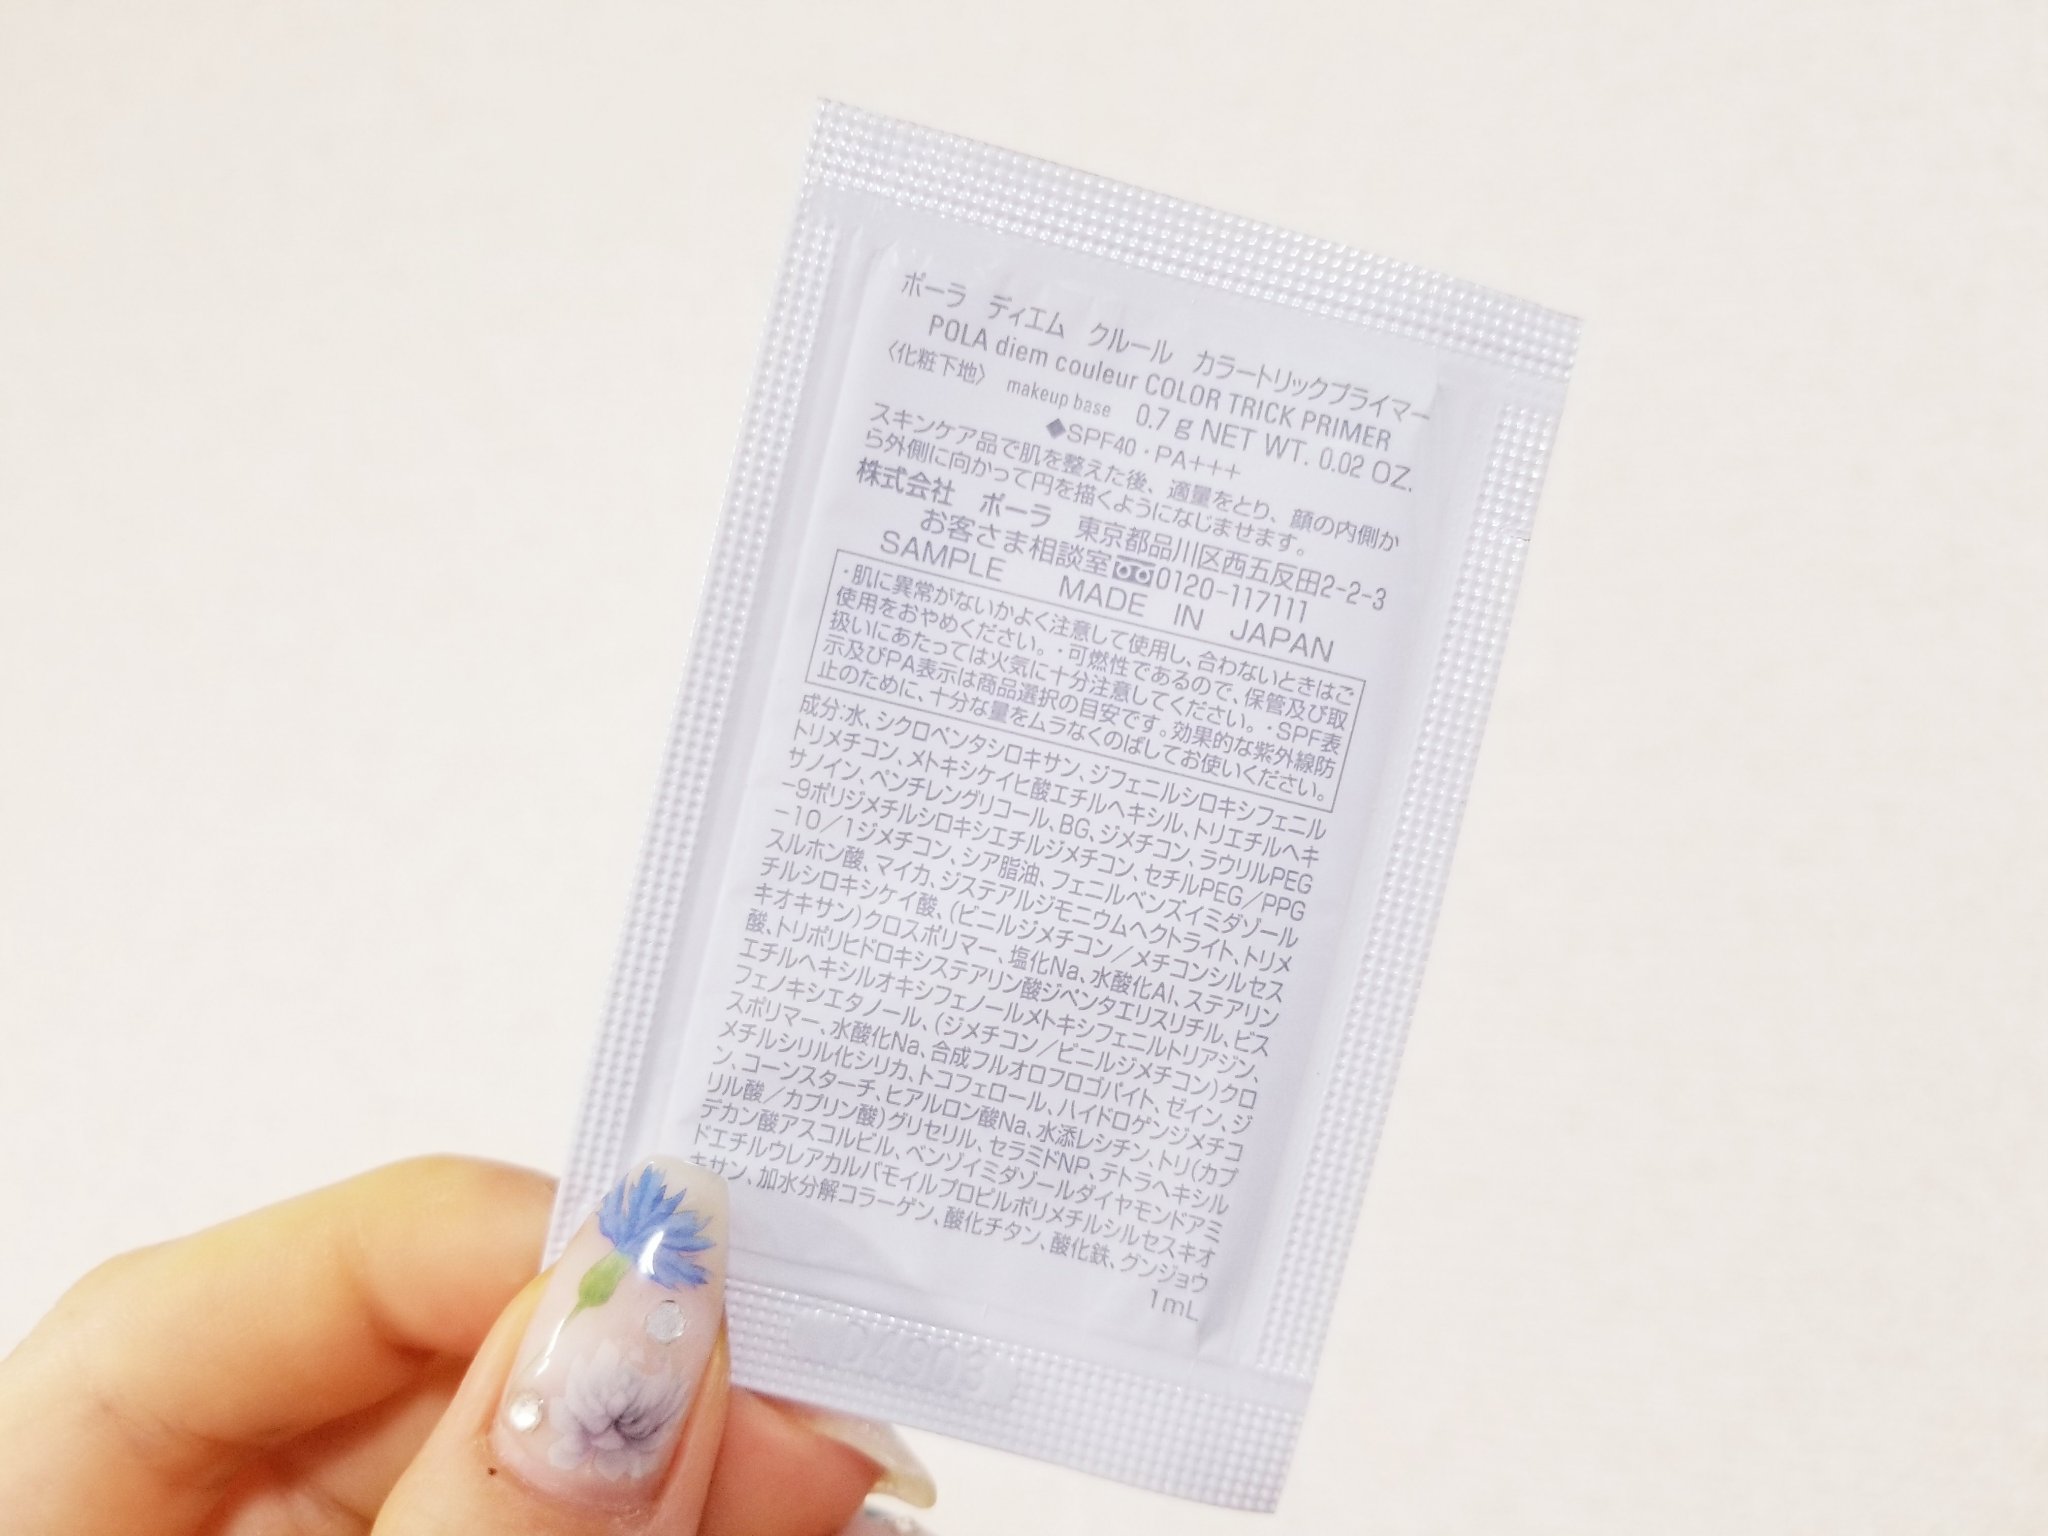 ポーラ ディエム クルール カラートリックプライマー
POLA diem couleur COLOR TRICK PRIMER
〈化粧下地〉 makeup base 0.7 g NET WT. 0.02 OZ.
◆SPF40・PA+++
スキンケア品で肌を整えた後、適量をとり、顔の内側か
ら外側に向かって円を描くようになじませます。
株式会社 ポーラ 東京都品川区西五反田2-2-3
お客さま相談室 0120-117111
SAMPLE MADE IN JAPAN
・肌に異常がないかよく注意して使用し、合わないときはご
使用をおやめください。・可燃性であるので、保管及び取
扱いにあたっては火気に十分注意してください。・SPF表
示及びPA表示は商品選択の目安です。効果的な紫外線防
止のために、十分な量をムラなくのばしてお使いください。
成分:水、シクロペンタシロキサン、ジフェニルシロキシフェニル
トリメチコン、メトキシケイヒ酸エチルヘキシル、トリエチルヘキ
サノイン、ペンチレングリコール、BG、ジメチコン、ラウリルPEG
-9ポリジメチルシロキシエチルジメチコン、セチルPEG/PPG
-10/1ジメチコン、シア脂油、フェニルベンズイミダゾール
スルホン酸、マイカ、ジステアルジモニウムヘクトライト、トリメ
チルシロキシケイ酸、(ビニルジメチコン/メチコンシルセス
キオキサン)クロスポリマー、塩化Na、水酸化Al、ステアリン
酸、トリポリヒドロキシステアリン酸ジペンタエリスリチル、ビス
エチルヘキシルオキシフェノールメトキシフェニルトリアジン、
フェノキシエタノール、(ジメチコン/ビニルジメチコン)クロ
スポリマー、水酸化Na、合成フルオロフロゴパイト、ゼイン、ジ
メチルシリル化シリカ、トコフェロール、ハイドロゲンジメチコ
ン、コーンスターチ、ヒアルロン酸Na、水添レシチン、トリ(カプ
リル酸/カプリン酸)グリセリル、セラミドNP、テトラヘキシル
デカン酸アスコルビル、ベンゾイミダゾールダイヤモンドアミ
ドエチルウレアカルバモイルプロピルポリメチルシルセスキオ
キサン、加水分解コラーゲン、酸化チタン、酸化鉄、グンジョウ
1mL